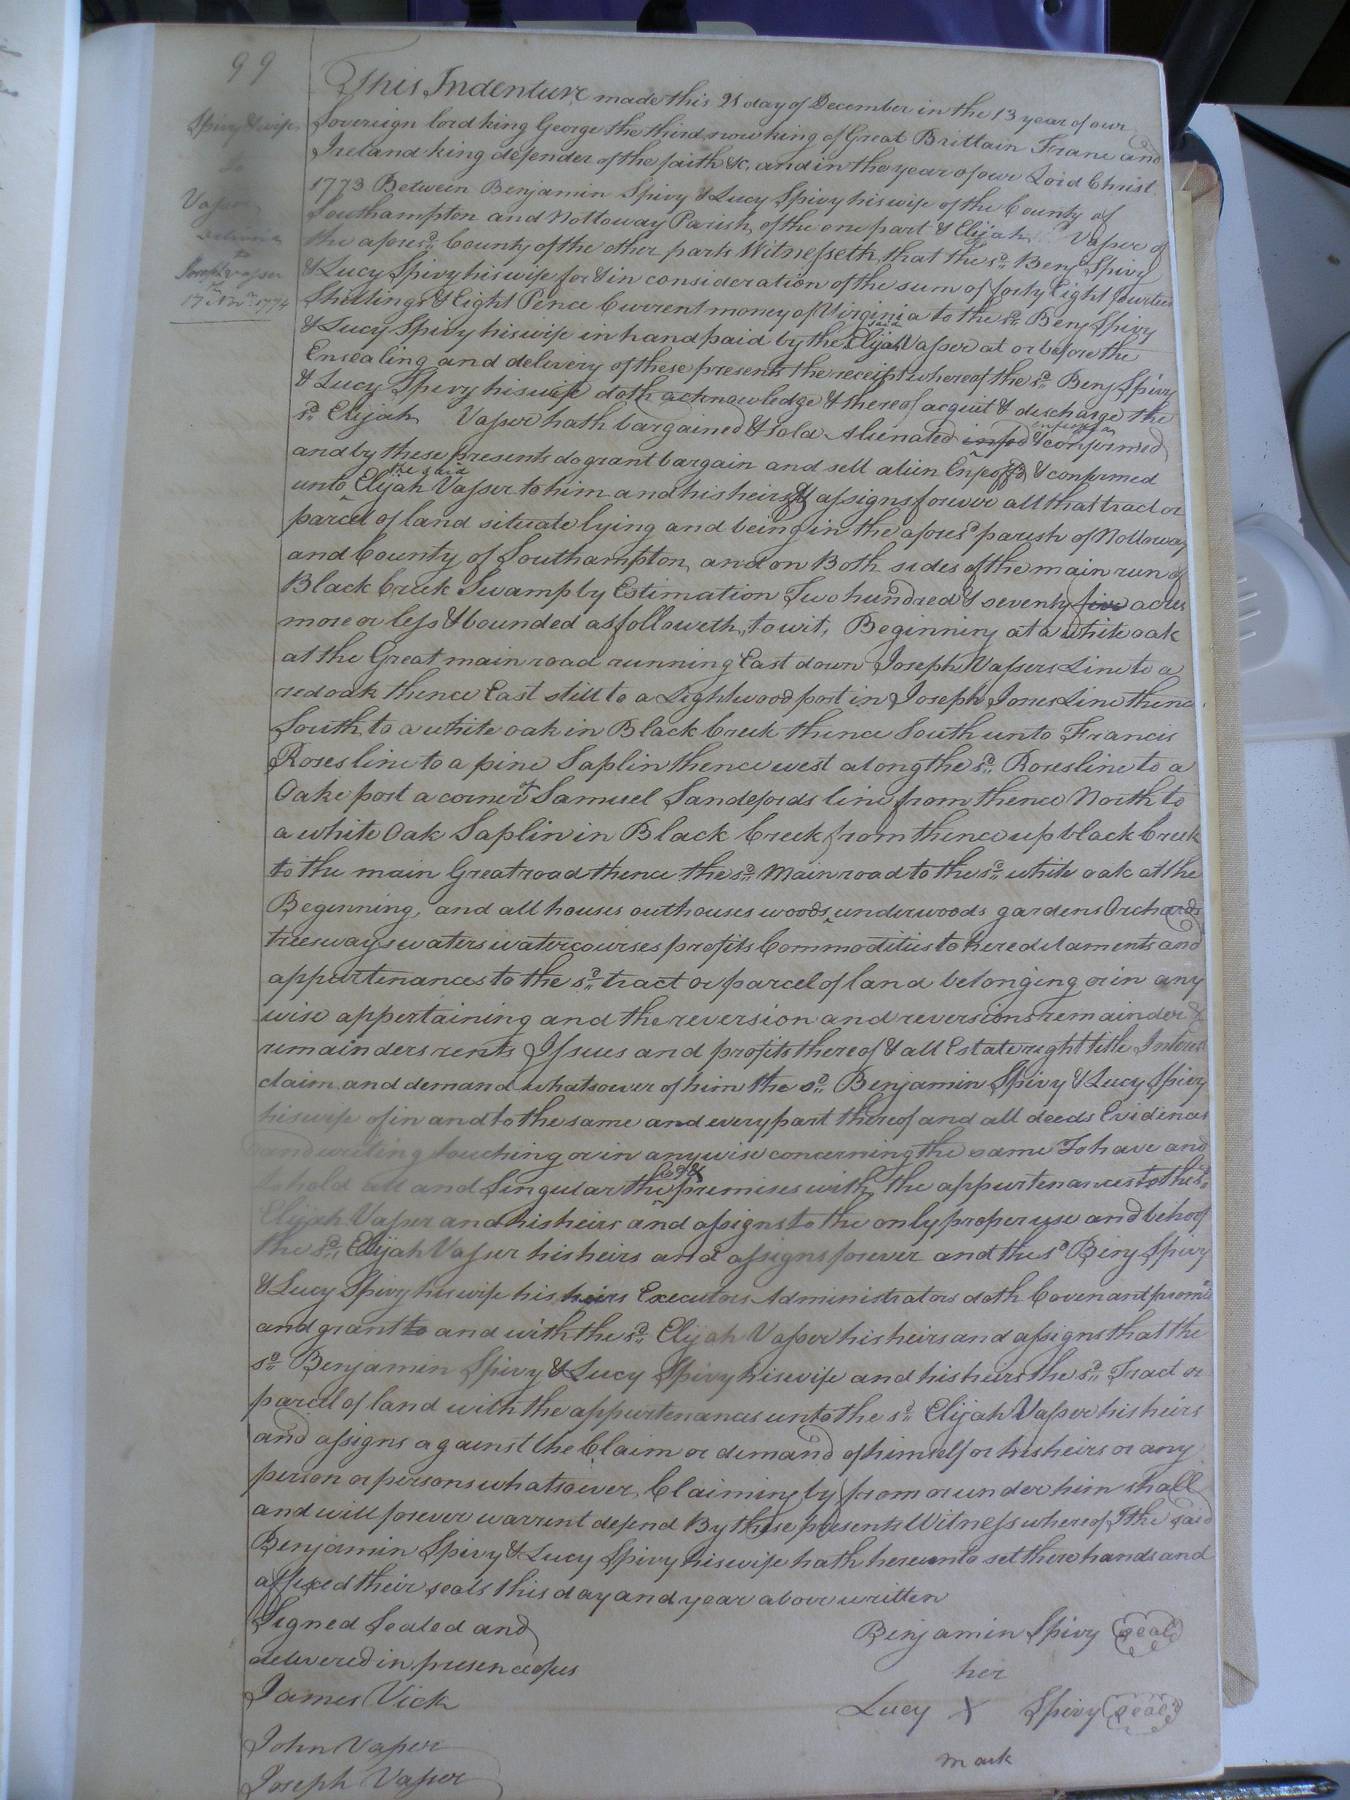 99
Spivy & wife
to
Vasser
Joseph Vasser
17th Novr. 1774
This Indenture made this 21 day of December in the 13 year of our
Sovereign lord king George the third now king of Great Brittain Frane and
Ireland king defender of the faith &c. and in the year of our Loid Christ
1773 Between Benjamin Spivy & Lucy Spivy his wife of the County of
Southampton and Nottoway Parish of the one part & Elijah Vasser of
the aforesd. County of the other parts Witnesseth that the sd. Benj Spivy
& Lucy Spivy his wife for & in consideration of the sum of forty Eight fourteen
Shillings & Eight Pence Current money of Virginia to the sd. Benj Spivy
& Lucy Spivy his wife in hand paid by the said Elijah Vasser at or before the
Ensealing and delivery of these presents the receipt whereof the sd. Benj Spivy
& Lucy Spivy his wife doth acknowledge & thereof acquit & discharge the
sd. Elijah Vasser hath bargained & sold Alienated & confirmed
and by these presents do grant bargain and sell alien Enfeoff'd & confirmed
unto the said Elijah Vasser to him and his heirs & assigns forever all that tract or
parcel of land situate lying and being in the aforesd parish of Nottoway
and County of Southampton and on Both sides of the main run of
Black Creek Swamp by Estimation Two hundred & seventy five acres
more or less & bounded as followeth, to wit, Beginning at a white oak
at the Great main road running East down Joseph Vassers Line to a
red oak thence East still to a Lightwood post in Joseph Jones Line thence
South to a white oak in Black Creek thence South unto Francis
Roses line to a pine Saplin thence west along the sd. Roses line to a
Oake post a corner of Samuel Sandefords line from thence North to
a white Oak Saplin in Black Creek from thence up black Creek
to the main Great road thence the sd. Main road to the sd. white oak at the
Beginning, and all houses outhouses woods, underwoods gardens Orchards
trees ways waters watercourses profits Commodities to hereditaments and
appurtenances to the sd. tract or parcel of land belonging or in any
wise appertaining and the reversion and reversions remainder &
remainders rents Issues and profits thereof & all Estate right title Interest
claim and demand whatsoever of him the sd. Benjamin Spivy & Lucy Spivy
his wife of in and to the same and every part thereof and all deeds Evidences
and writing touching or in any wise concerning the same To have and
to hold all and Singular the premises with the appurtenances to the sd.
Elijah Vasser and his heirs and assigns to the only proper use and behoof
the sd. Elijah Vasser his heirs and assigns forever and the sd Benj Spivy
& Lucy Spivy his wife his heirs Executors Administrators doth Covenant promis
and grant to and with the sd. Elijah Vasser his heirs and assigns that the
sd. Benjamin Spivy & Lucy Spivy his wife and his heirs the sd. Tract or
parcel of land with the appurtenances unto the sd. Elijah Vasser his heirs
and assigns against the Claim or demand of himself or his heirs or any
person or persons whatsoever Claiming by from or under him shall
and will forever warrent defend By these presents Witness whereof I the said
Benjamin Spivy & Lucy Spivy his wife hath hereunto set there hands and
affixed their seals this day and year above written
Signed Sealed and
delivered in presence of us
James Vick
John Vasser
Joseph Vasser
Benjamin Spivy seal
her
Lucy X Spivy seal
mark